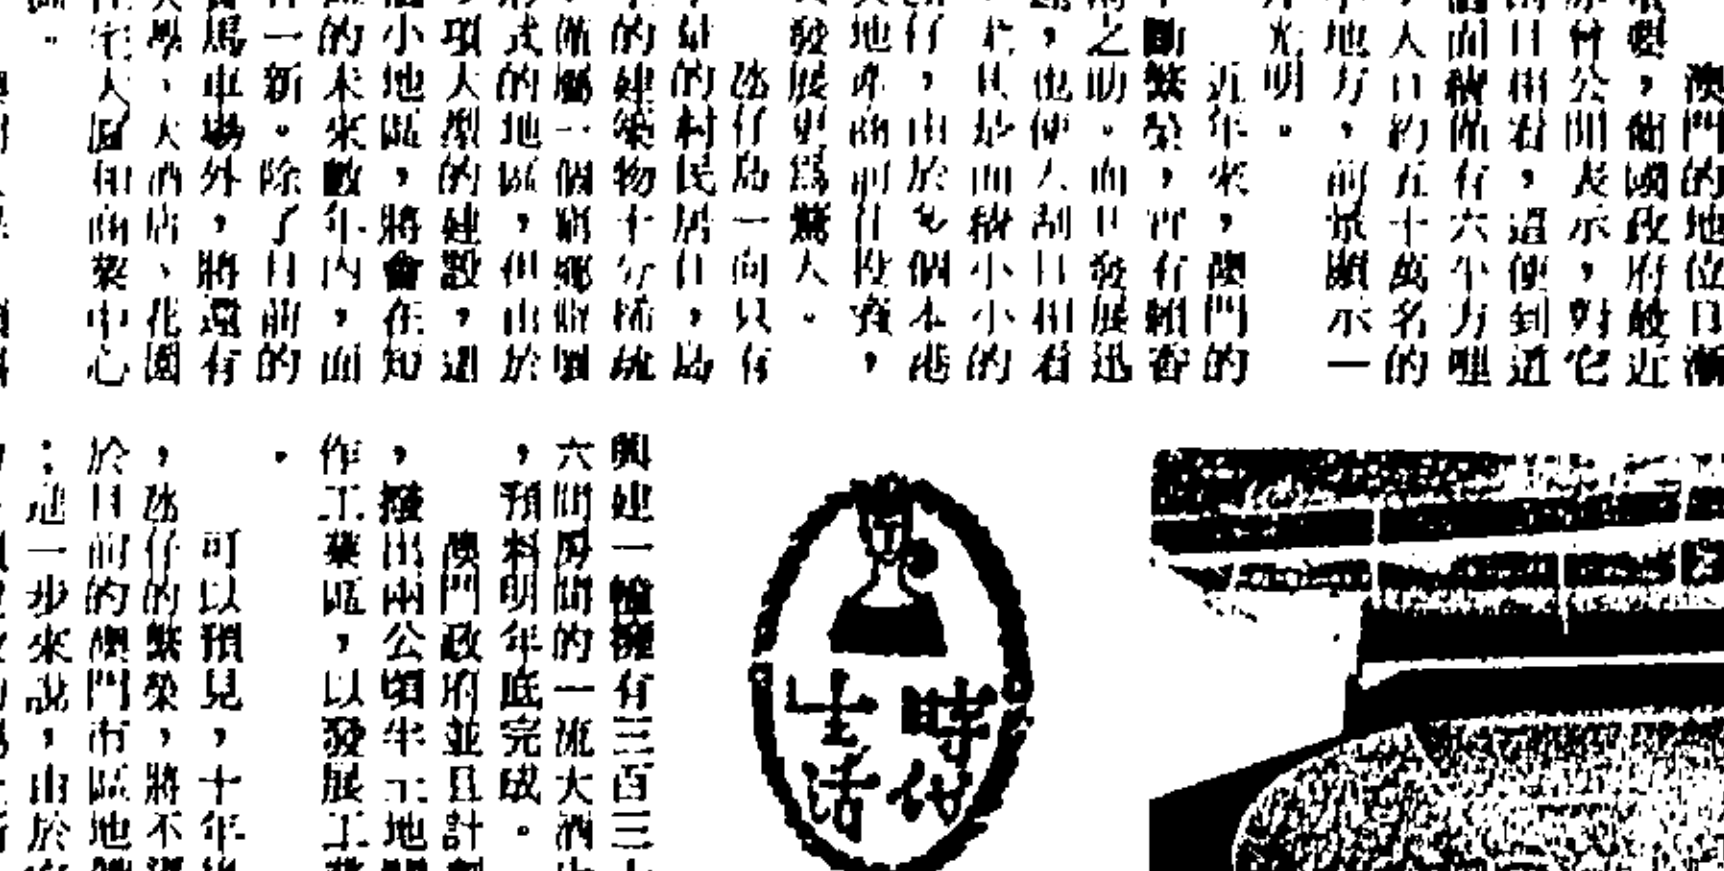 澳門的地位日漸
變,葡國政府最近
曾公開表示,對它
目相看,這使到這
面積僅有六平方哩
,人口約五十萬名的
地方,前景顯示一
光明。
近年來,澳門的
斷繁榮,實有賴香
之助。而且發展迅
,也使人刮目相看
尤其是面積小小的
仔,由於多個本港
地產商前往投資,
發展更爲驚人。
氹仔島一向只有
量的村民居住,島
的建築物十分稀疏
僅屬一個窮鄉僻壤
式的地區,但由於
項大型的建設,這
小地區,將會在短
的未來數年內,面
一新。除了目前的
馬車場外,將還有
學、大酒店、花園
宅大廈和商業中心
。
興建一幢擁有三百三
六間房間的一流大酒
,預料明年底完成。
澳門政府並且計
,撥出兩公頃半土地
作工業區,以發展工
。
可以預見,十年
,氹仔的繁榮,將不
於目前的澳門市區地
;進一步來說,由於
時代
生活